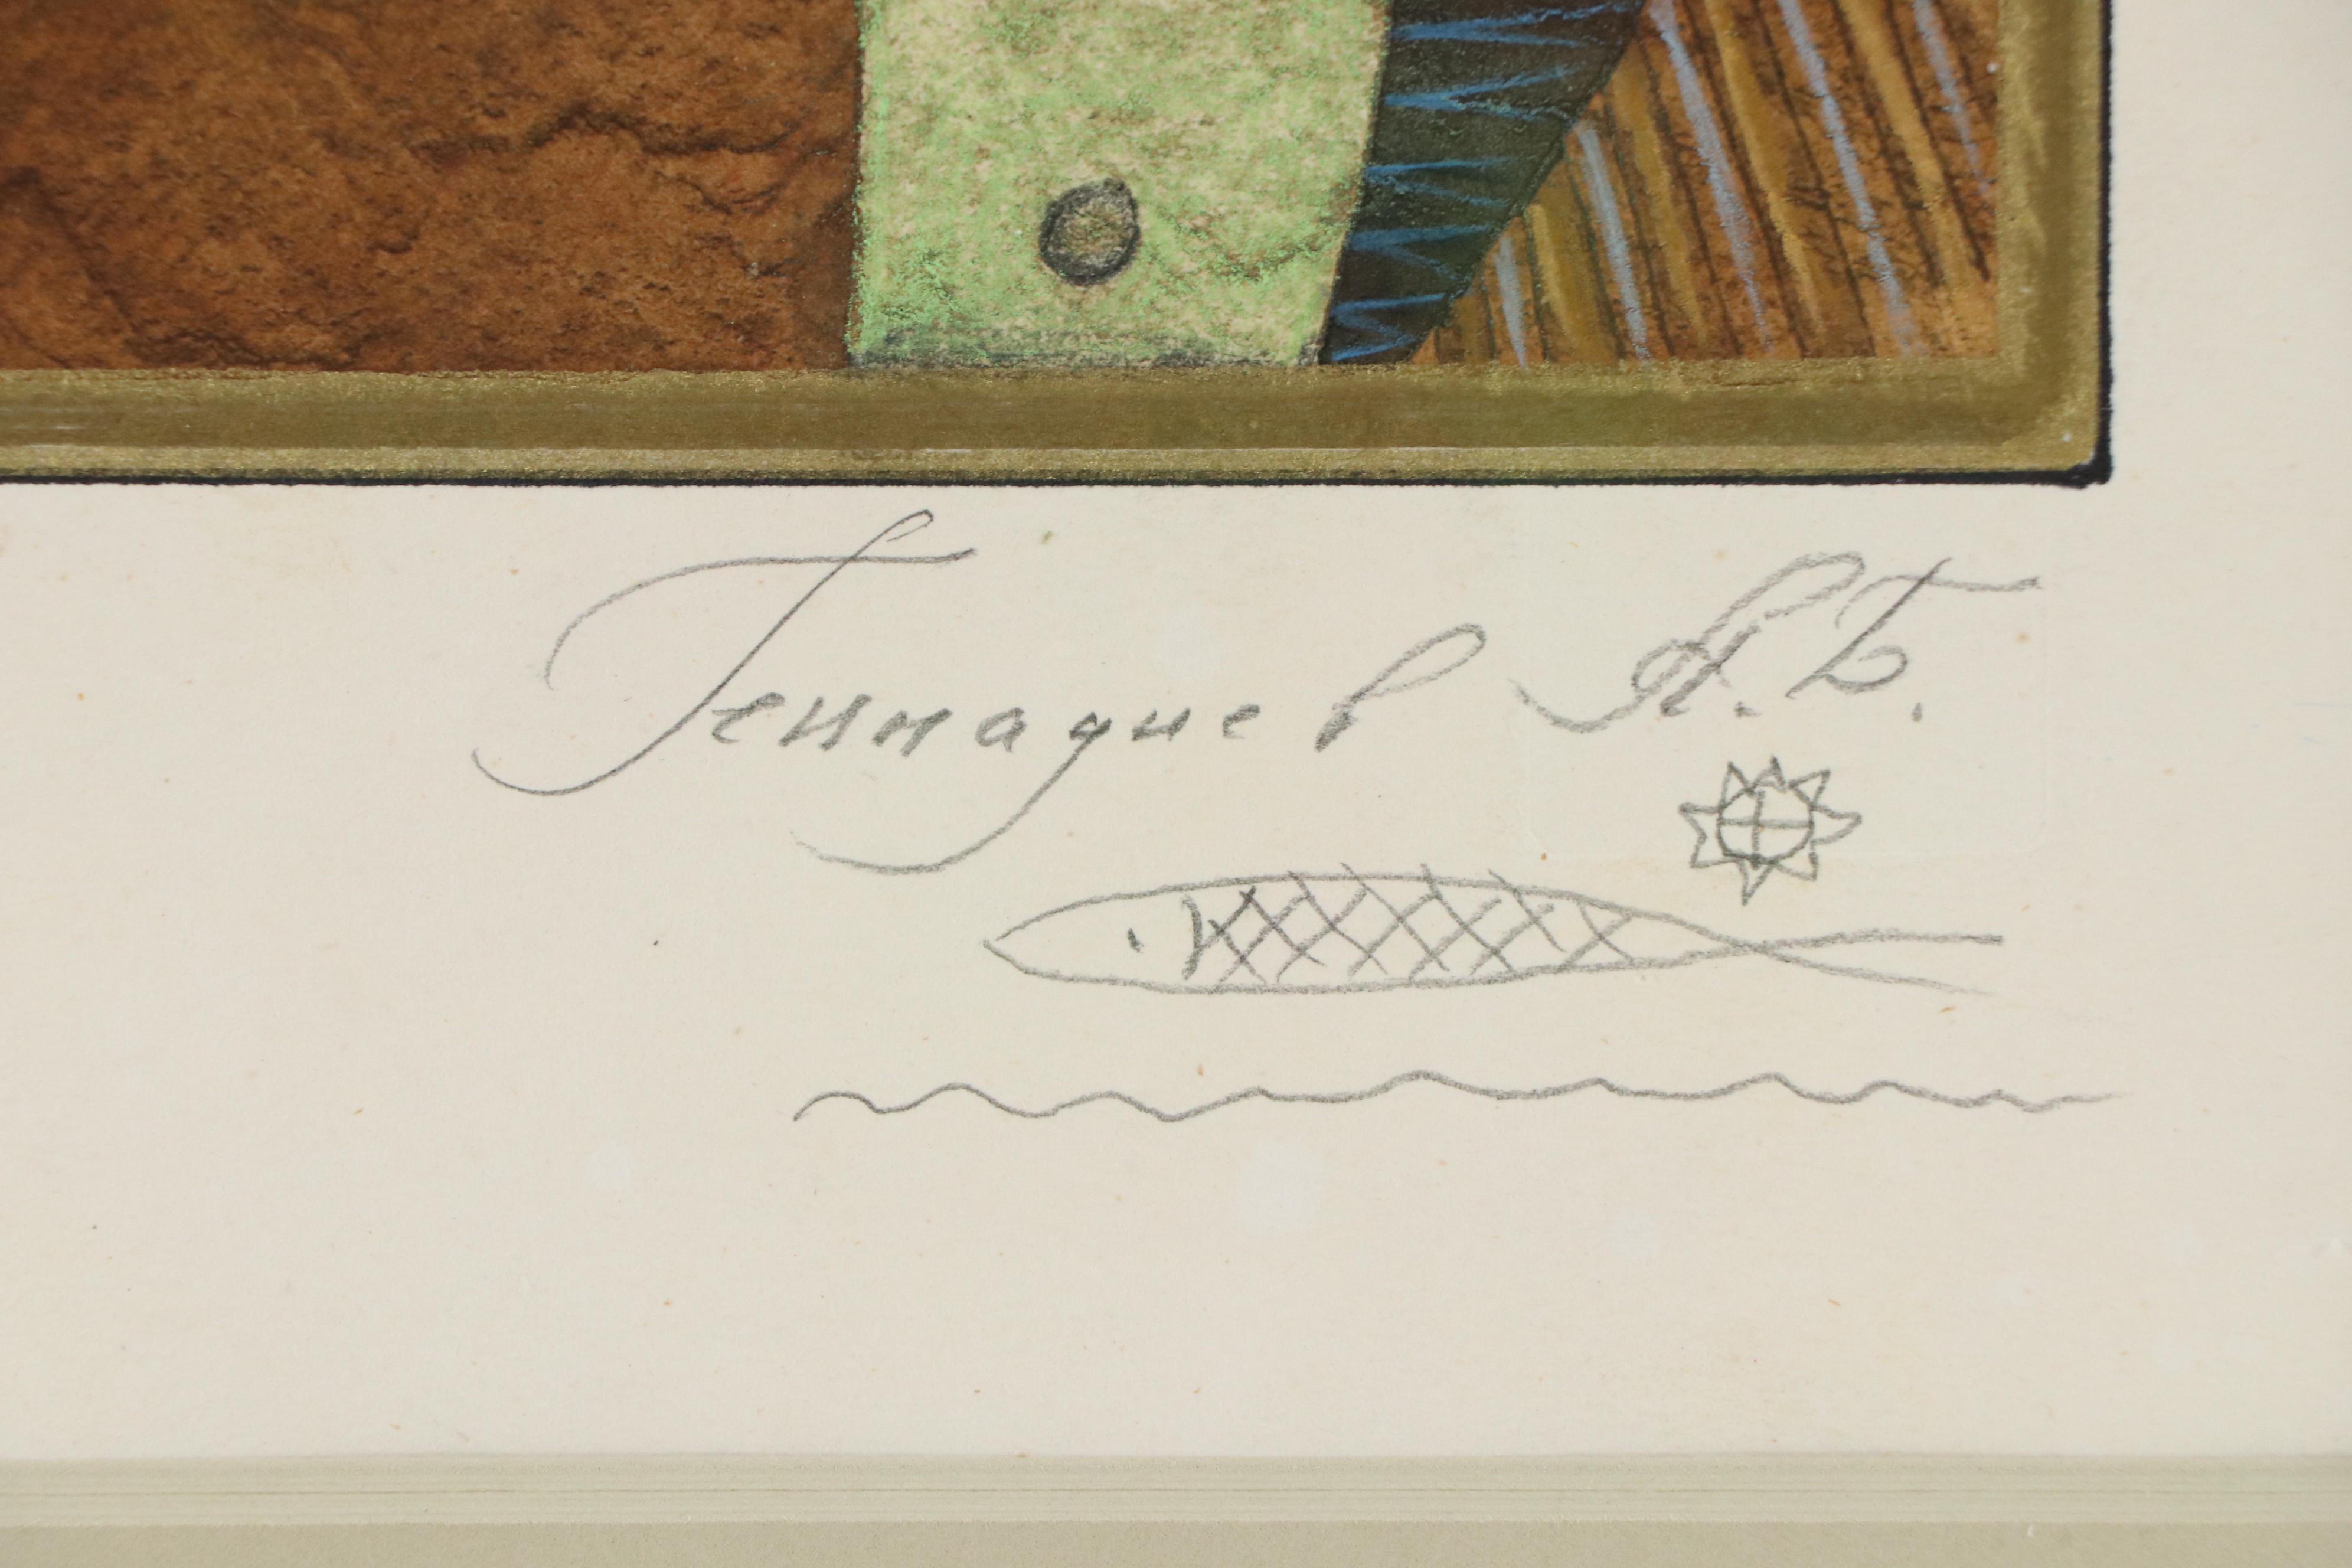 Геннадиев А.Б.